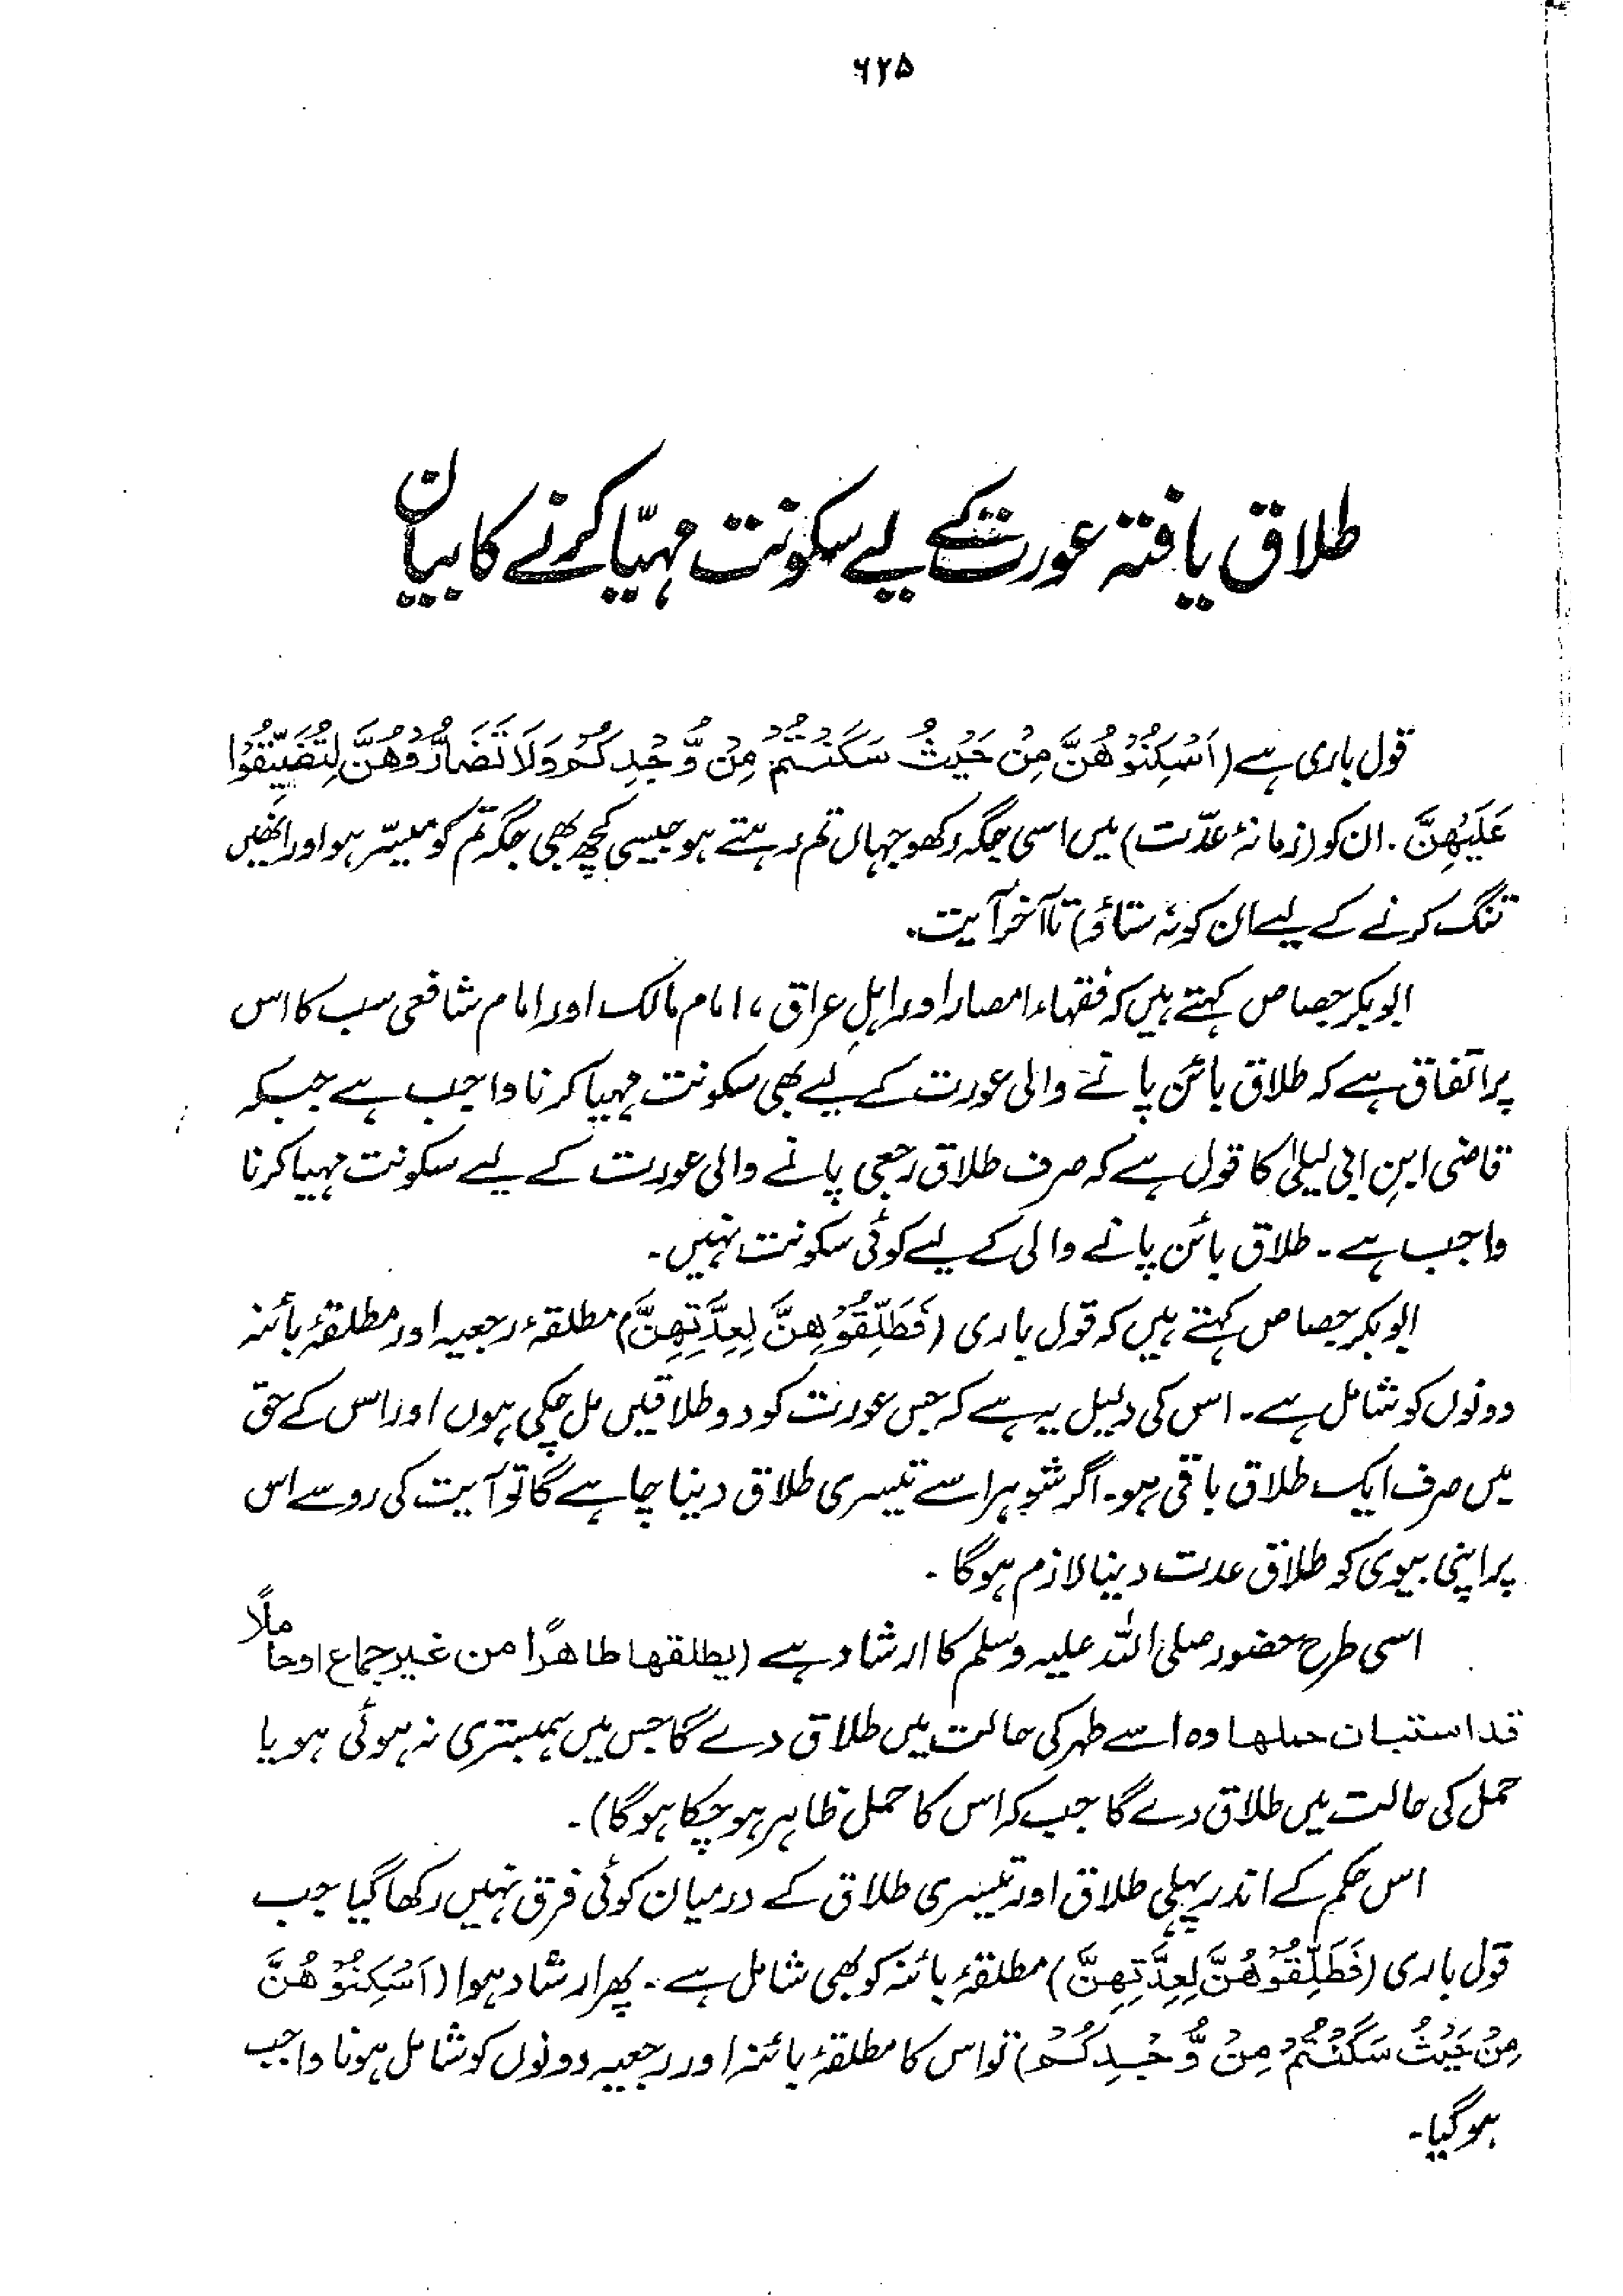 ۶۲۵
طلاق یافتہ عورت کے لیے سکونت مہیّا کرنے کا بیان
قول باری ہے (اَسْكِنُوْهُنَّ مِنْ حَيْثُ سَكَنْتُمْ مِنْ وُّجْدِكُمْ وَلَا تُضَارُّوْهُنَّ لِتُضَيِّقُوْا
عَلَيْهِنَّ. ان کو (زمانۂ عدّت) میں اسی جگہ رکھو جہاں تم رہتے ہو جیسی کچھ بھی جگہ تم کو میسّر ہو اور انھیں
تنگ کرنے کے لیے ان کو نہ ستاؤ) تا آخر آیت۔
ابوبکر جصاص کہتے ہیں کہ فقہاء امصار اور اہلِ عراق، امام مالک اور امام شافعی سب کا اس
پر اتفاق ہے کہ طلاق بائن پانے والی عورت کے لیے بھی سکونت مہیا کرنا واجب ہے جبکہ
قاضی ابنِ ابی لیلیٰ کا قول ہے کہ صرف طلاق رجعی پانے والی عورت کے لیے سکونت مہیا کرنا
واجب ہے۔ طلاق بائن پانے والی کے لیے کوئی سکونت نہیں۔
ابوبکر جصاص کہتے ہیں کہ قول باری (فَطَلِّقُوْهُنَّ لِعِدَّتِهِنَّ) مطلقۂ رجعیہ اور مطلقۂ بائنہ
دونوں کو شامل ہے۔ اس کی دلیل یہ ہے کہ جس عورت کو دو طلاقیں مل چکی ہوں اور اس کے حق
میں صرف ایک طلاق باقی ہو۔ اگر شوہر اسے تیسری طلاق دینا چاہے گا تو آیت کی رو سے اس
پر اپنی بیوی کو طلاق عدت دینا لازم ہوگا۔
اسی طرح حضور صلی اللہ علیہ وسلم کا ارشاد ہے (يطلقها طاهرًا من غير جماع او حاملًا
قد استبان حملها وہ اسے طہر کی حالت میں طلاق دے گا جس میں ہمبستری نہ ہوئی ہو یا
حمل کی حالت میں طلاق دے گا جب کہ اس کا حمل ظاہر ہو چکا ہوگا)۔
اس حکم کے اندر پہلی طلاق اور تیسری طلاق کے درمیان کوئی فرق نہیں رکھا گیا جب
قول باری (فَطَلِّقُوْهُنَّ لِعِدَّتِهِنَّ) مطلقۂ بائنہ کو بھی شامل ہے۔ پھر ارشاد ہوا (اَسْكِنُوْهُنَّ
مِنْ حَيْثُ سَكَنْتُمْ مِنْ وُّجْدِكُمْ) تو اس کا مطلقۂ بائنہ اور رجعیہ دونوں کو شامل ہونا واجب
ہوگیا۔